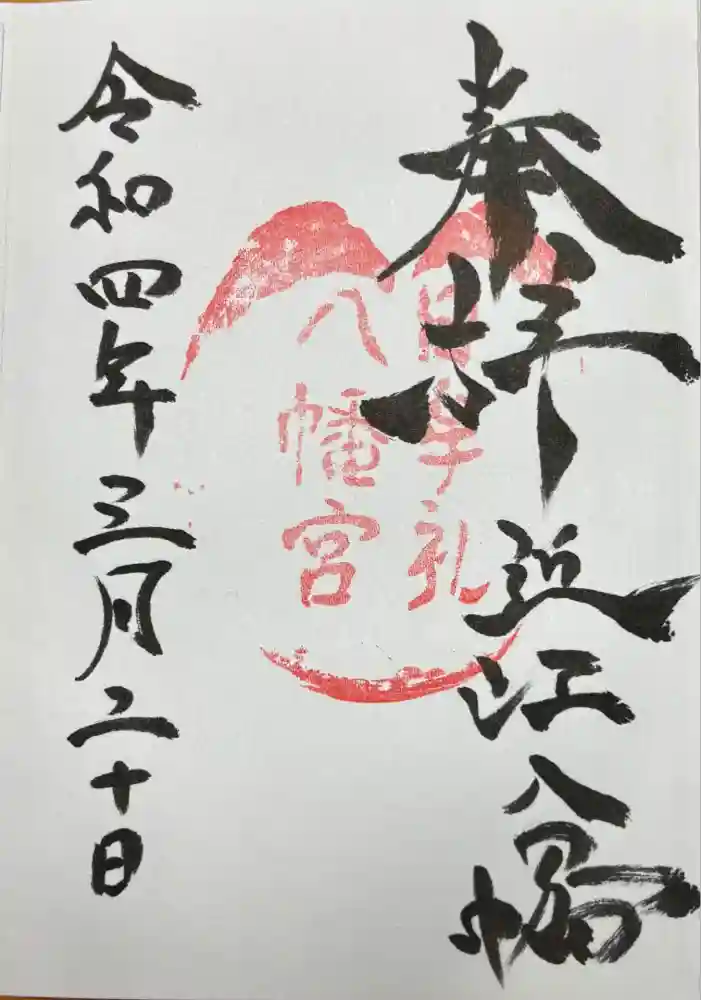 奉拝
近江八幡
日牟礼
八幡宮
令和四年三月二十日